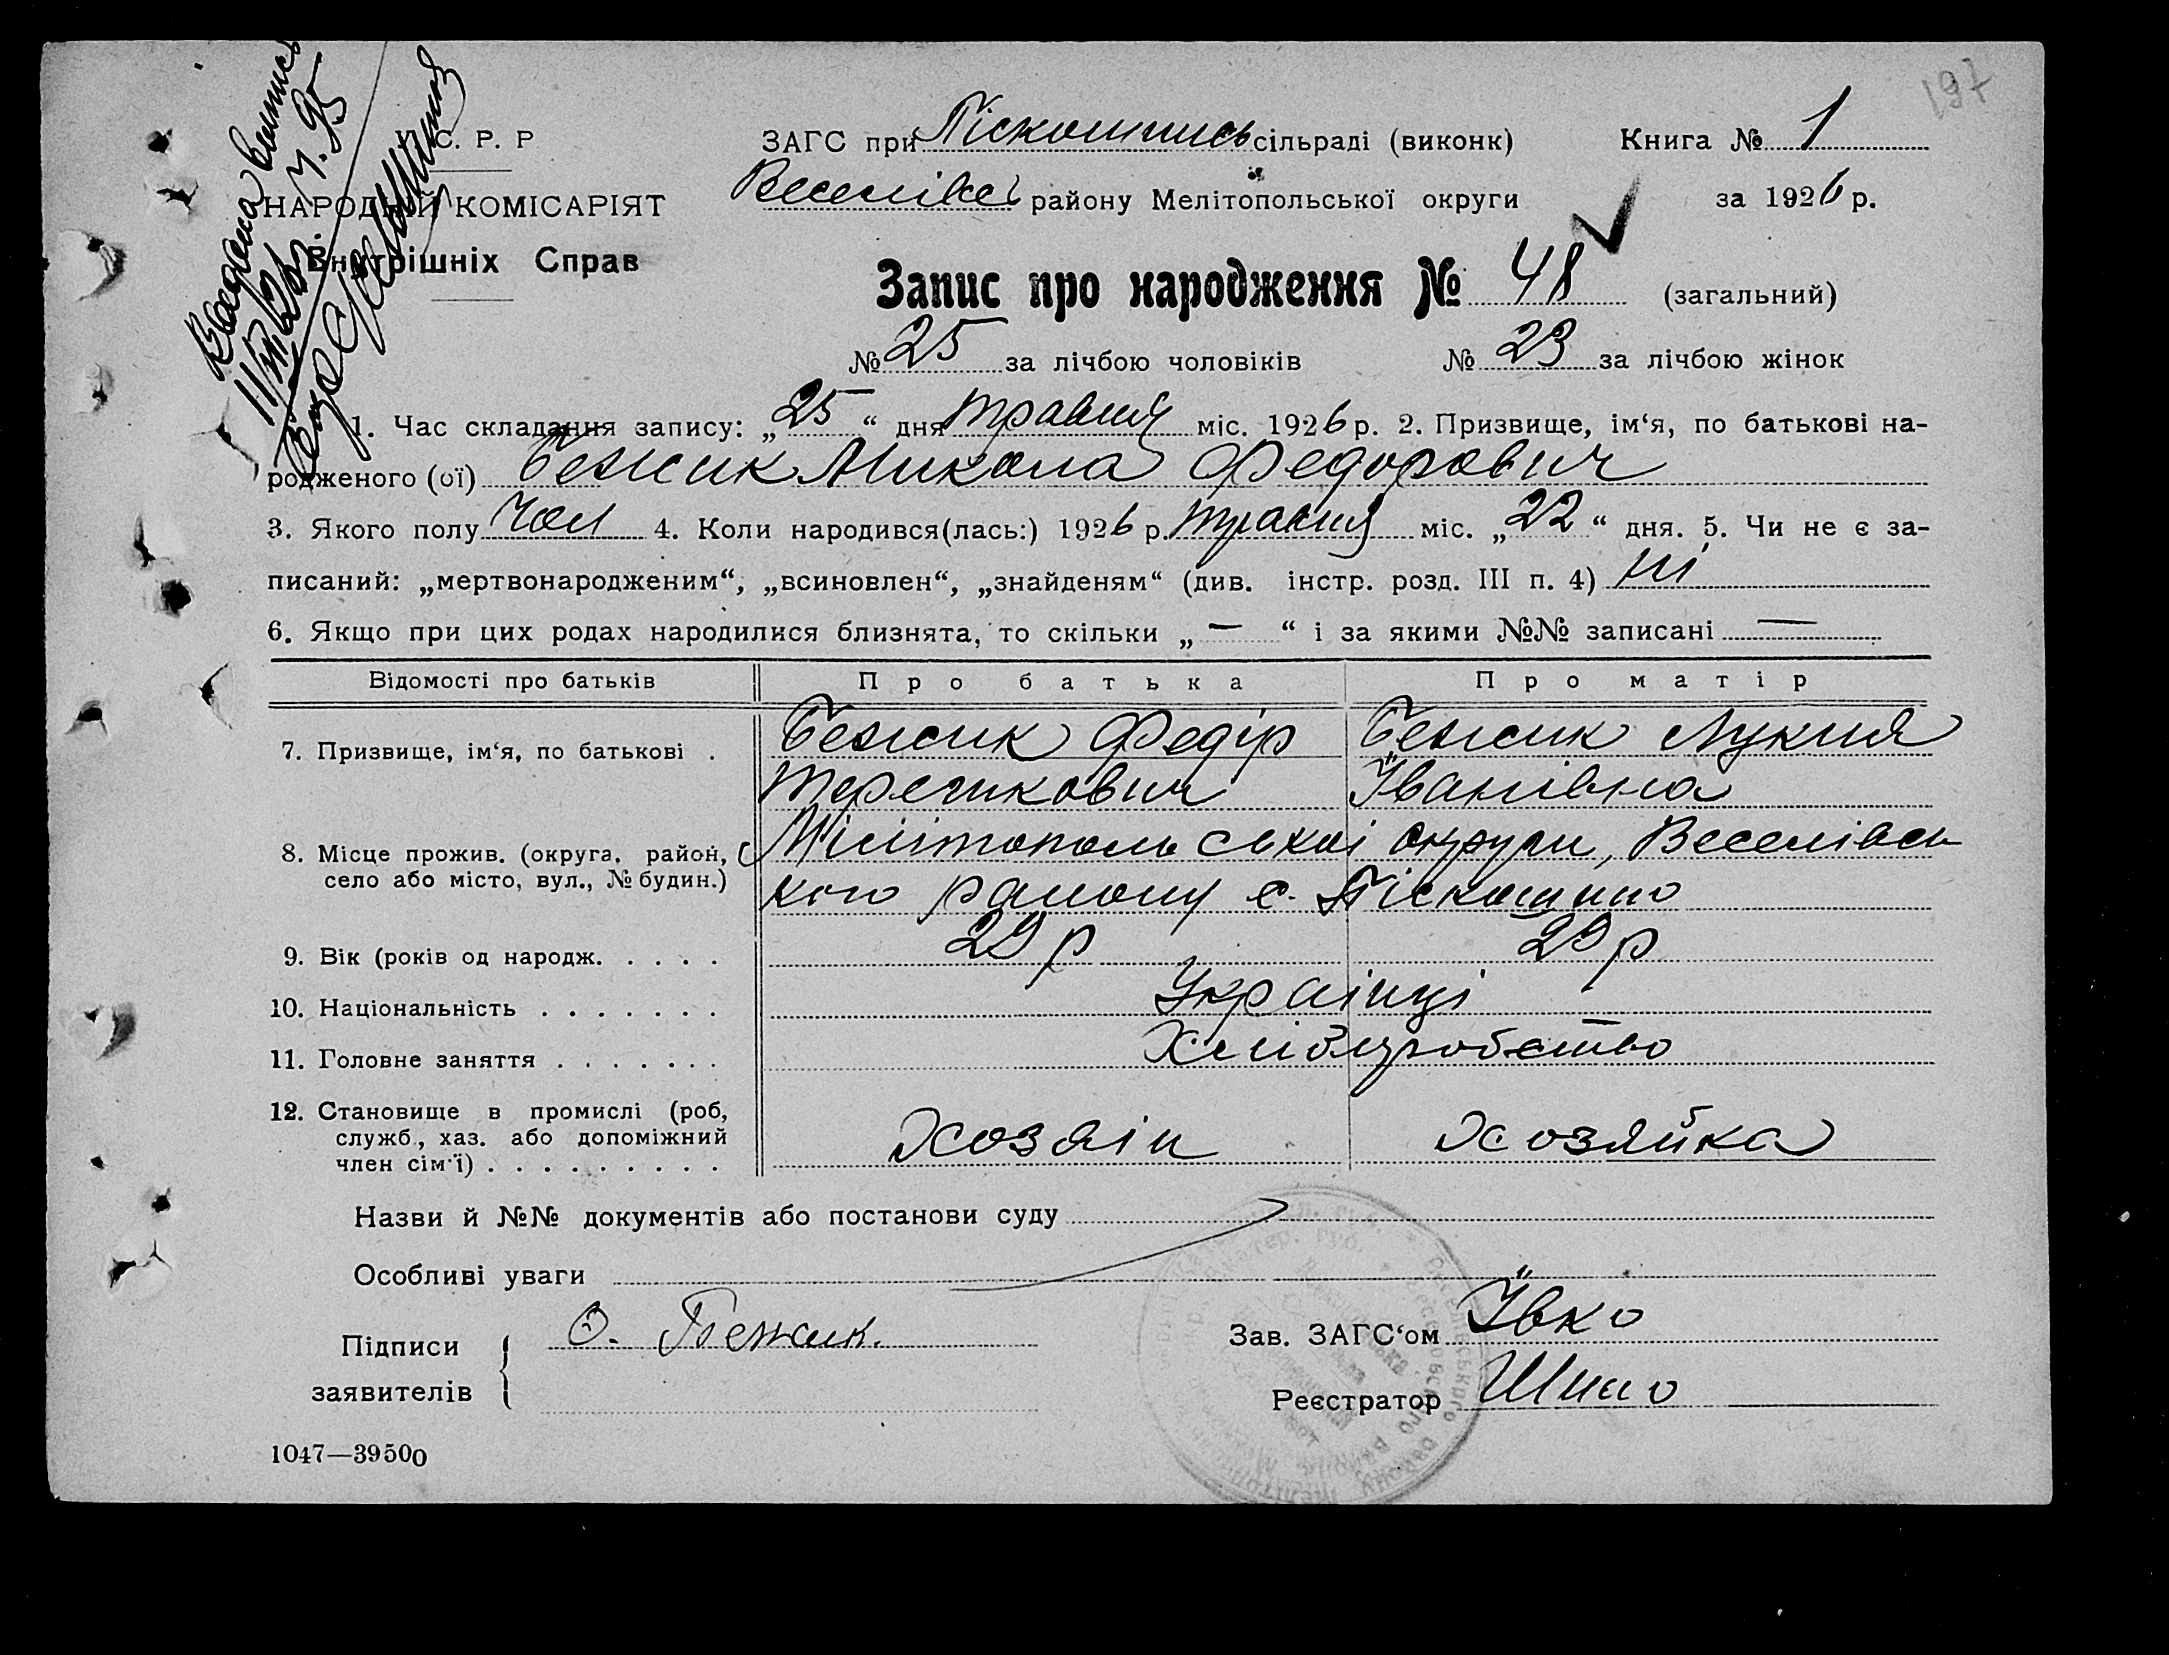 197
У. С. Р. Р
НАРОДНИЙ КОМІСАРІЯТ
Внутрішніх Справ
Видана выпись
ЗАГС при Піскошинсь сільраді (виконк) Книга № 1
Веселівсь району Мелітопольської округи за 1926 р.
Запис про народження № 48 (загальний)
№ 25 за лічбою чоловіків № 23 за лічбою жінок
1. Час складання запису: „25“ дня травня міс. 1926 р. 2. Призвище, ім‘я, по батькові на-
родженого (ої) Бежик Микола Федорович
3. Якого полу Чол 4. Коли народився(лась:) 1926 р. травня міс. „22“ дня. 5. Чи не є за-
писаний: „мертвонародженим“, „всиновлен“, „знайденям“ (див. інстр. розд. III п. 4) ні
6. Якщо при цих родах народилися близнята, то скільки „ — “ і за якими №№ записані —
Відомості про батьків Про батька Про матір
7. Призвище, ім‘я, по батькові . Бежик Федір Бежик Лукия
Терешкович Іванівна
8. Місце прожив. (округа, район, село або місто, вул., № будин.) Мілітопольської округи, Веселівсь
кого району с. Піскошино
9. Вік (років од народж. . . . . 29 р 29 р
10. Національність . . . . . . . Українці
11. Головне заняття . . . . . . . Хлібуробство
12. Становище в промислі (роб, служб., хаз. або допоміжний член сім‘ї) . . . . . . . . . Хозяін Хозяйка
Назви й №№ документів або постанови суду
Особливі уваги
Підписи заявителів Ѳ. Бежик.
Зав. ЗАГС‘ом Івко
Реєстратор Шило
1047—39500